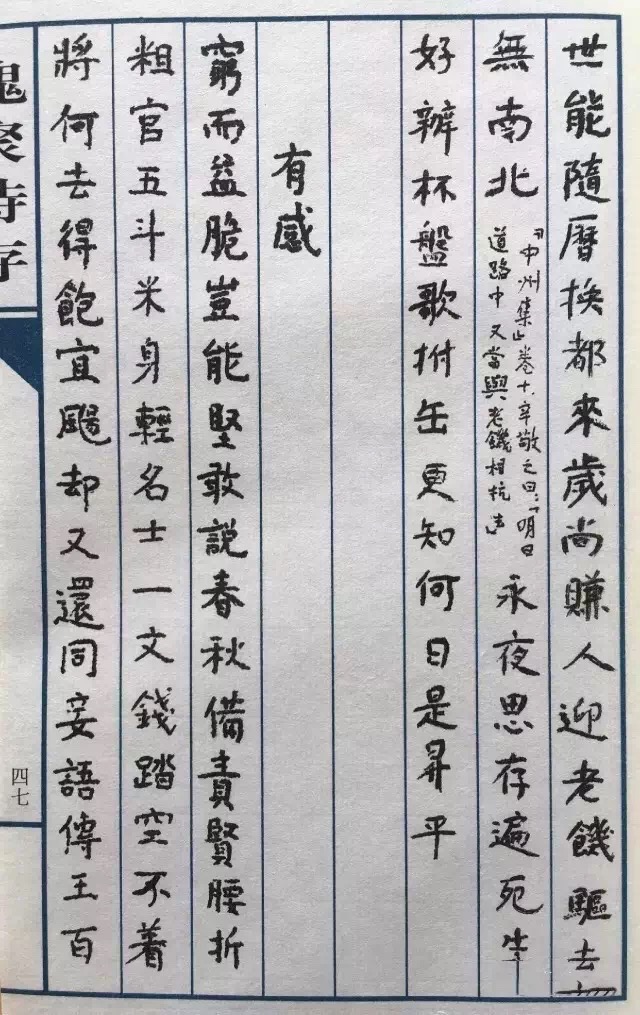 世能隨曆换都來歲尚賺人迎老饑驅去
無南北
『中州集』卷十辛敬之曰：「明日
道路中又當與老饑相抗去」
永夜思存遍死生
好辦杯盤歌拊缶更知何日是昇平
有感
窮而益脆豈能堅敢説春秋備責賢腰折
粗官五斗米身輕名士一文錢踏空不着
將何去得飽宜颺却又還同妄語傳王百
槐聚詩存
四七